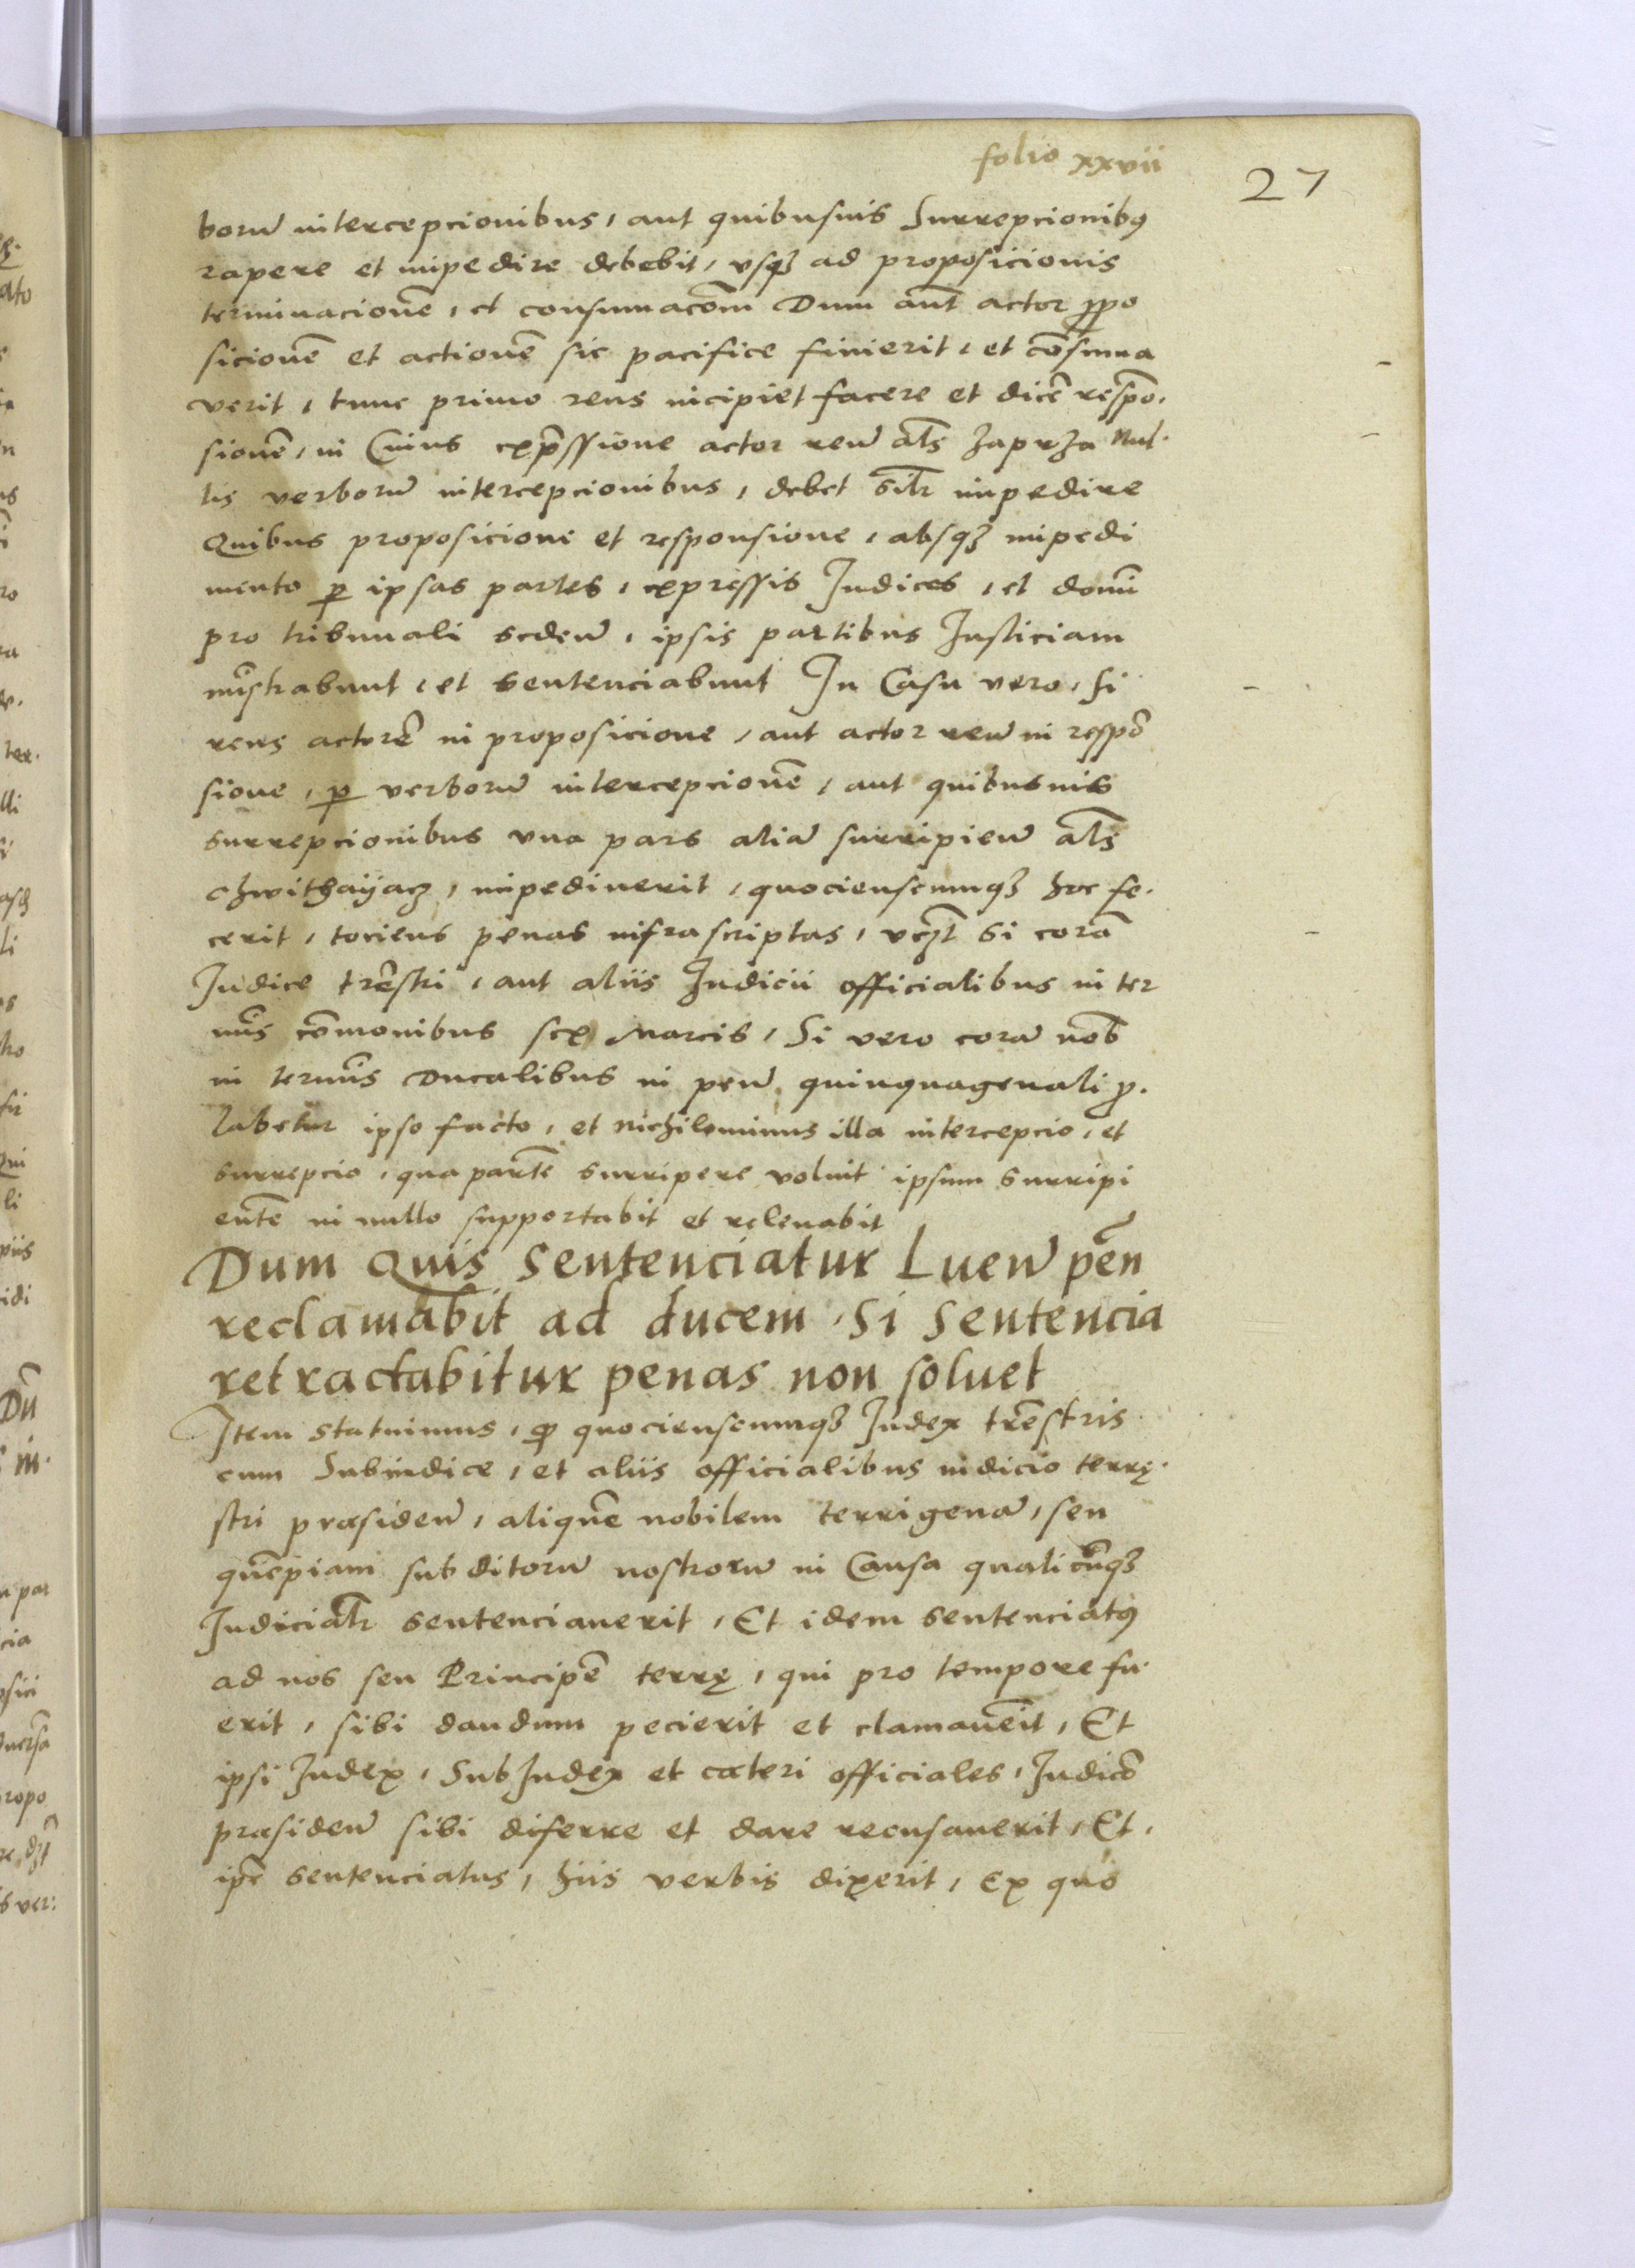 folio xxvii
27
borum intercepcionibus, aut quibusuis Surrepcionibꝰ
rapere et impedire debebit, vsqꝫ ad proposicionis
terminacionẽ, et consumacõm Dum aũt actor ꝓpo
sicionẽ et actionẽ sic pacifice finierit, et cõsuma
verit, tunc primo reus incipiet facere et dicẽ respõ.
sionẽ, in Cuius exp̃ssione actor reũ al̃s zaprza Nul.
lis verborũ intercepcionibus, debet sil̃r impedire
Quibus proposicione et responsione, absqꝫ impedi
mento ꝑ ipsas partes, expressis Iudices, et domĩ
pro tribunali sedeñ, ipsis partibus Iusticiam
mĩstrabunt, et sentenciabunt In Casu vero, si
reus actorẽ in proposicione, aut actor reũ in respõ
sione, ꝑ verborũ intercepcionẽ, aut quibusuis
surrepcionibus vna pars aliã surripieñ al̃s
chwithayacz, impediuerit, quociensc​umqꝫ hoc fe.
cerit, tociens penas infrascriptas, vczt̃ si corã
Iudice tr̃estri, aut aliis Iudicii officialibus in ter
mĩs cõmonibus sex Marcis, Si vero corã nob̃
in termĩs Ducalibus in peñ quinquagenali ꝓ.
labetur ipso facto, et nichilominus illa intercepcio, et
surrepcio, qua partẽ surripere voluit ipsum surripi
entẽ in nullo supportabit et releuabit
Dum Quis Sentenciatur Lueñ pẽn
reclamabit ad ducem, Si Sentencia
retractabitur penas non soluet
Item statuimus, ꝙ quocienscumqꝫ Iudex tr̃estris
cum Subiudice, et aliis officialibus iudicio terrę.
stri præsideñ, aliquẽ nobilem terrigenã, seu
quẽpiam subditorũ nostrorũ in Causa qualicũqꝫ
Iudicial̃r sentenciauerit, Et idem sentenciatꝰ
ad nos seu Principẽ terrę, qui pro tempore fu.
erit, sibi dandum pecierit et clamauẽit, Et
ipsi Iudex, SubIudex et cæteri officiales, Iudicõ
præsideñ sibi diferre et dare recusauerit, Et.
ip̃e sentenciatus, hiis verbis dixerit, Ex quo